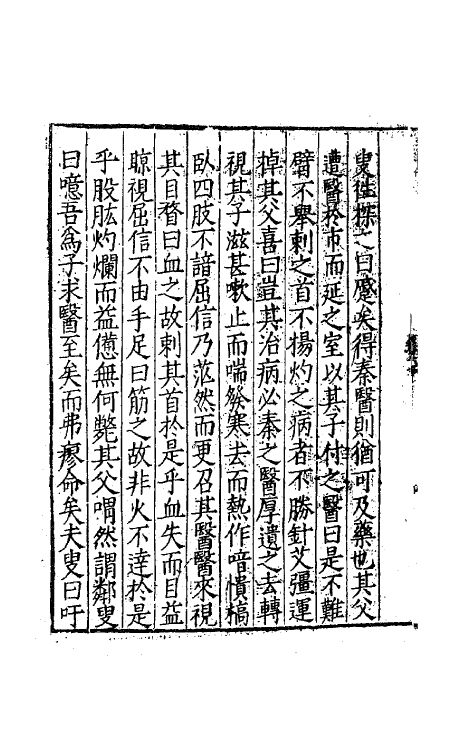 叟徃探之曰蹙矣得秦醫則猶可及藥也其父
遭醫於市而延之室以其子付之醫曰是不難
臂不舉刺之首不揚灼之病者不勝針艾彊運
掉其父喜曰豈其治病必秦之醫厚遺之去轉
視其子滋甚嗽止而喘餘寒去而熱作喑憒槁
臥四肢不諳屈信乃茫然而更召其醫醫來視
其目瞀曰血之故刺其首於是乎血失而目益
瞭視屈信不由手足曰筋之故非火不達於是
乎股肱灼爛而益憊無何斃其父喟然謂鄰叟
曰噫吾爲子求醫至矣而弗瘳命矣夫叟曰吁